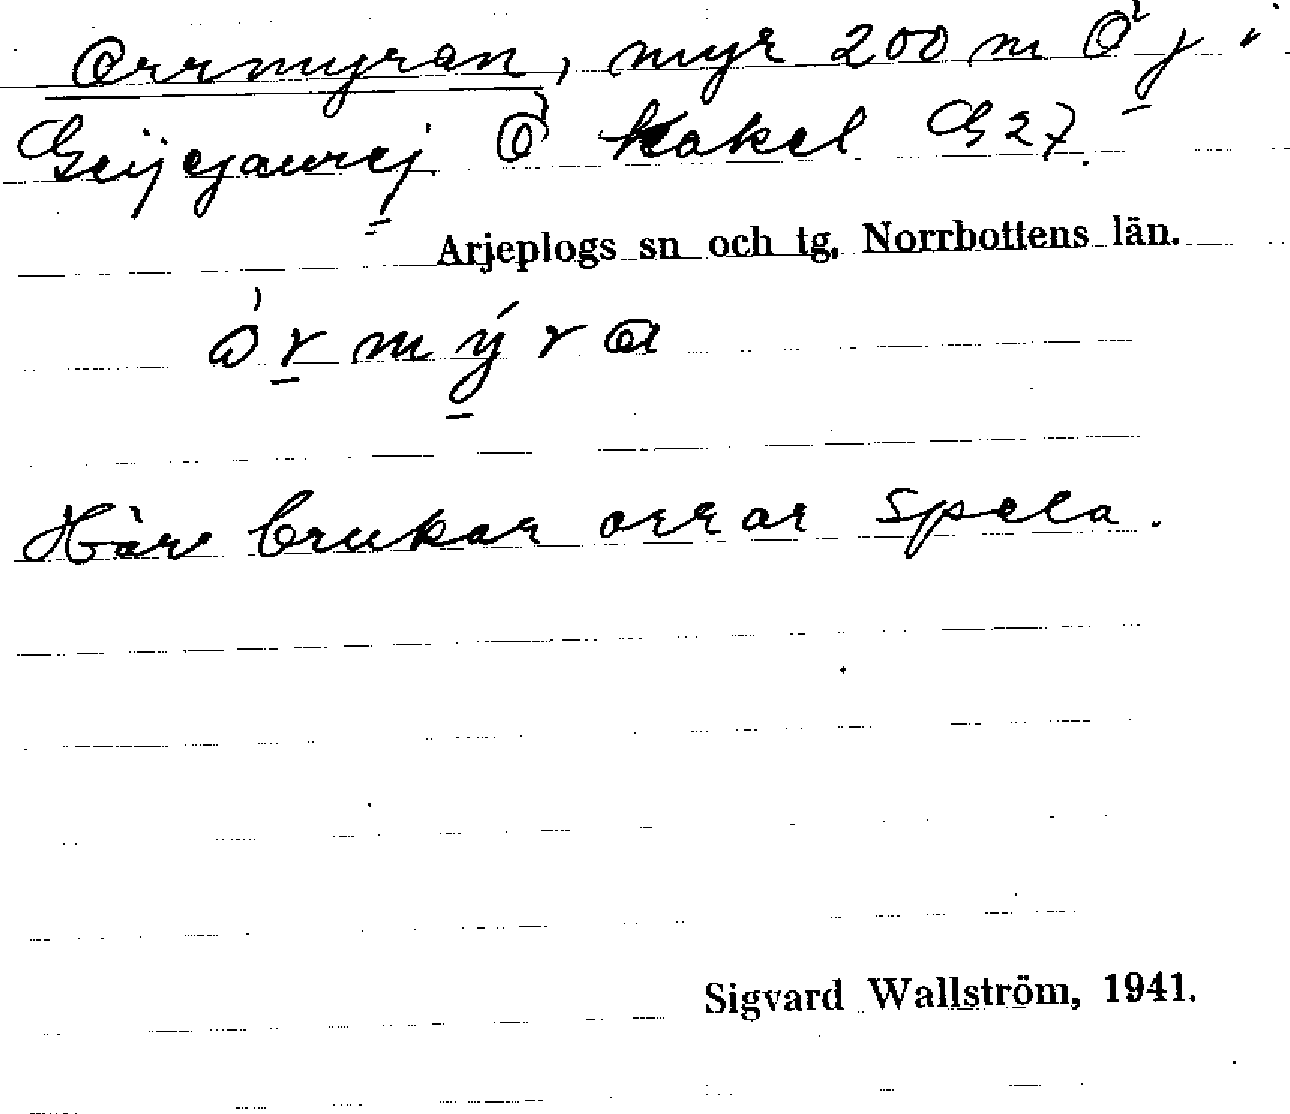 Orrmyran, myr 200 m Ö j i
Geijejaurej Ö Kakel G27.
Arjeplogs sn och tg, Norrbottens län.
òrmýra
Här brukar orrar spela.
Sigvard Wallström, 1941.